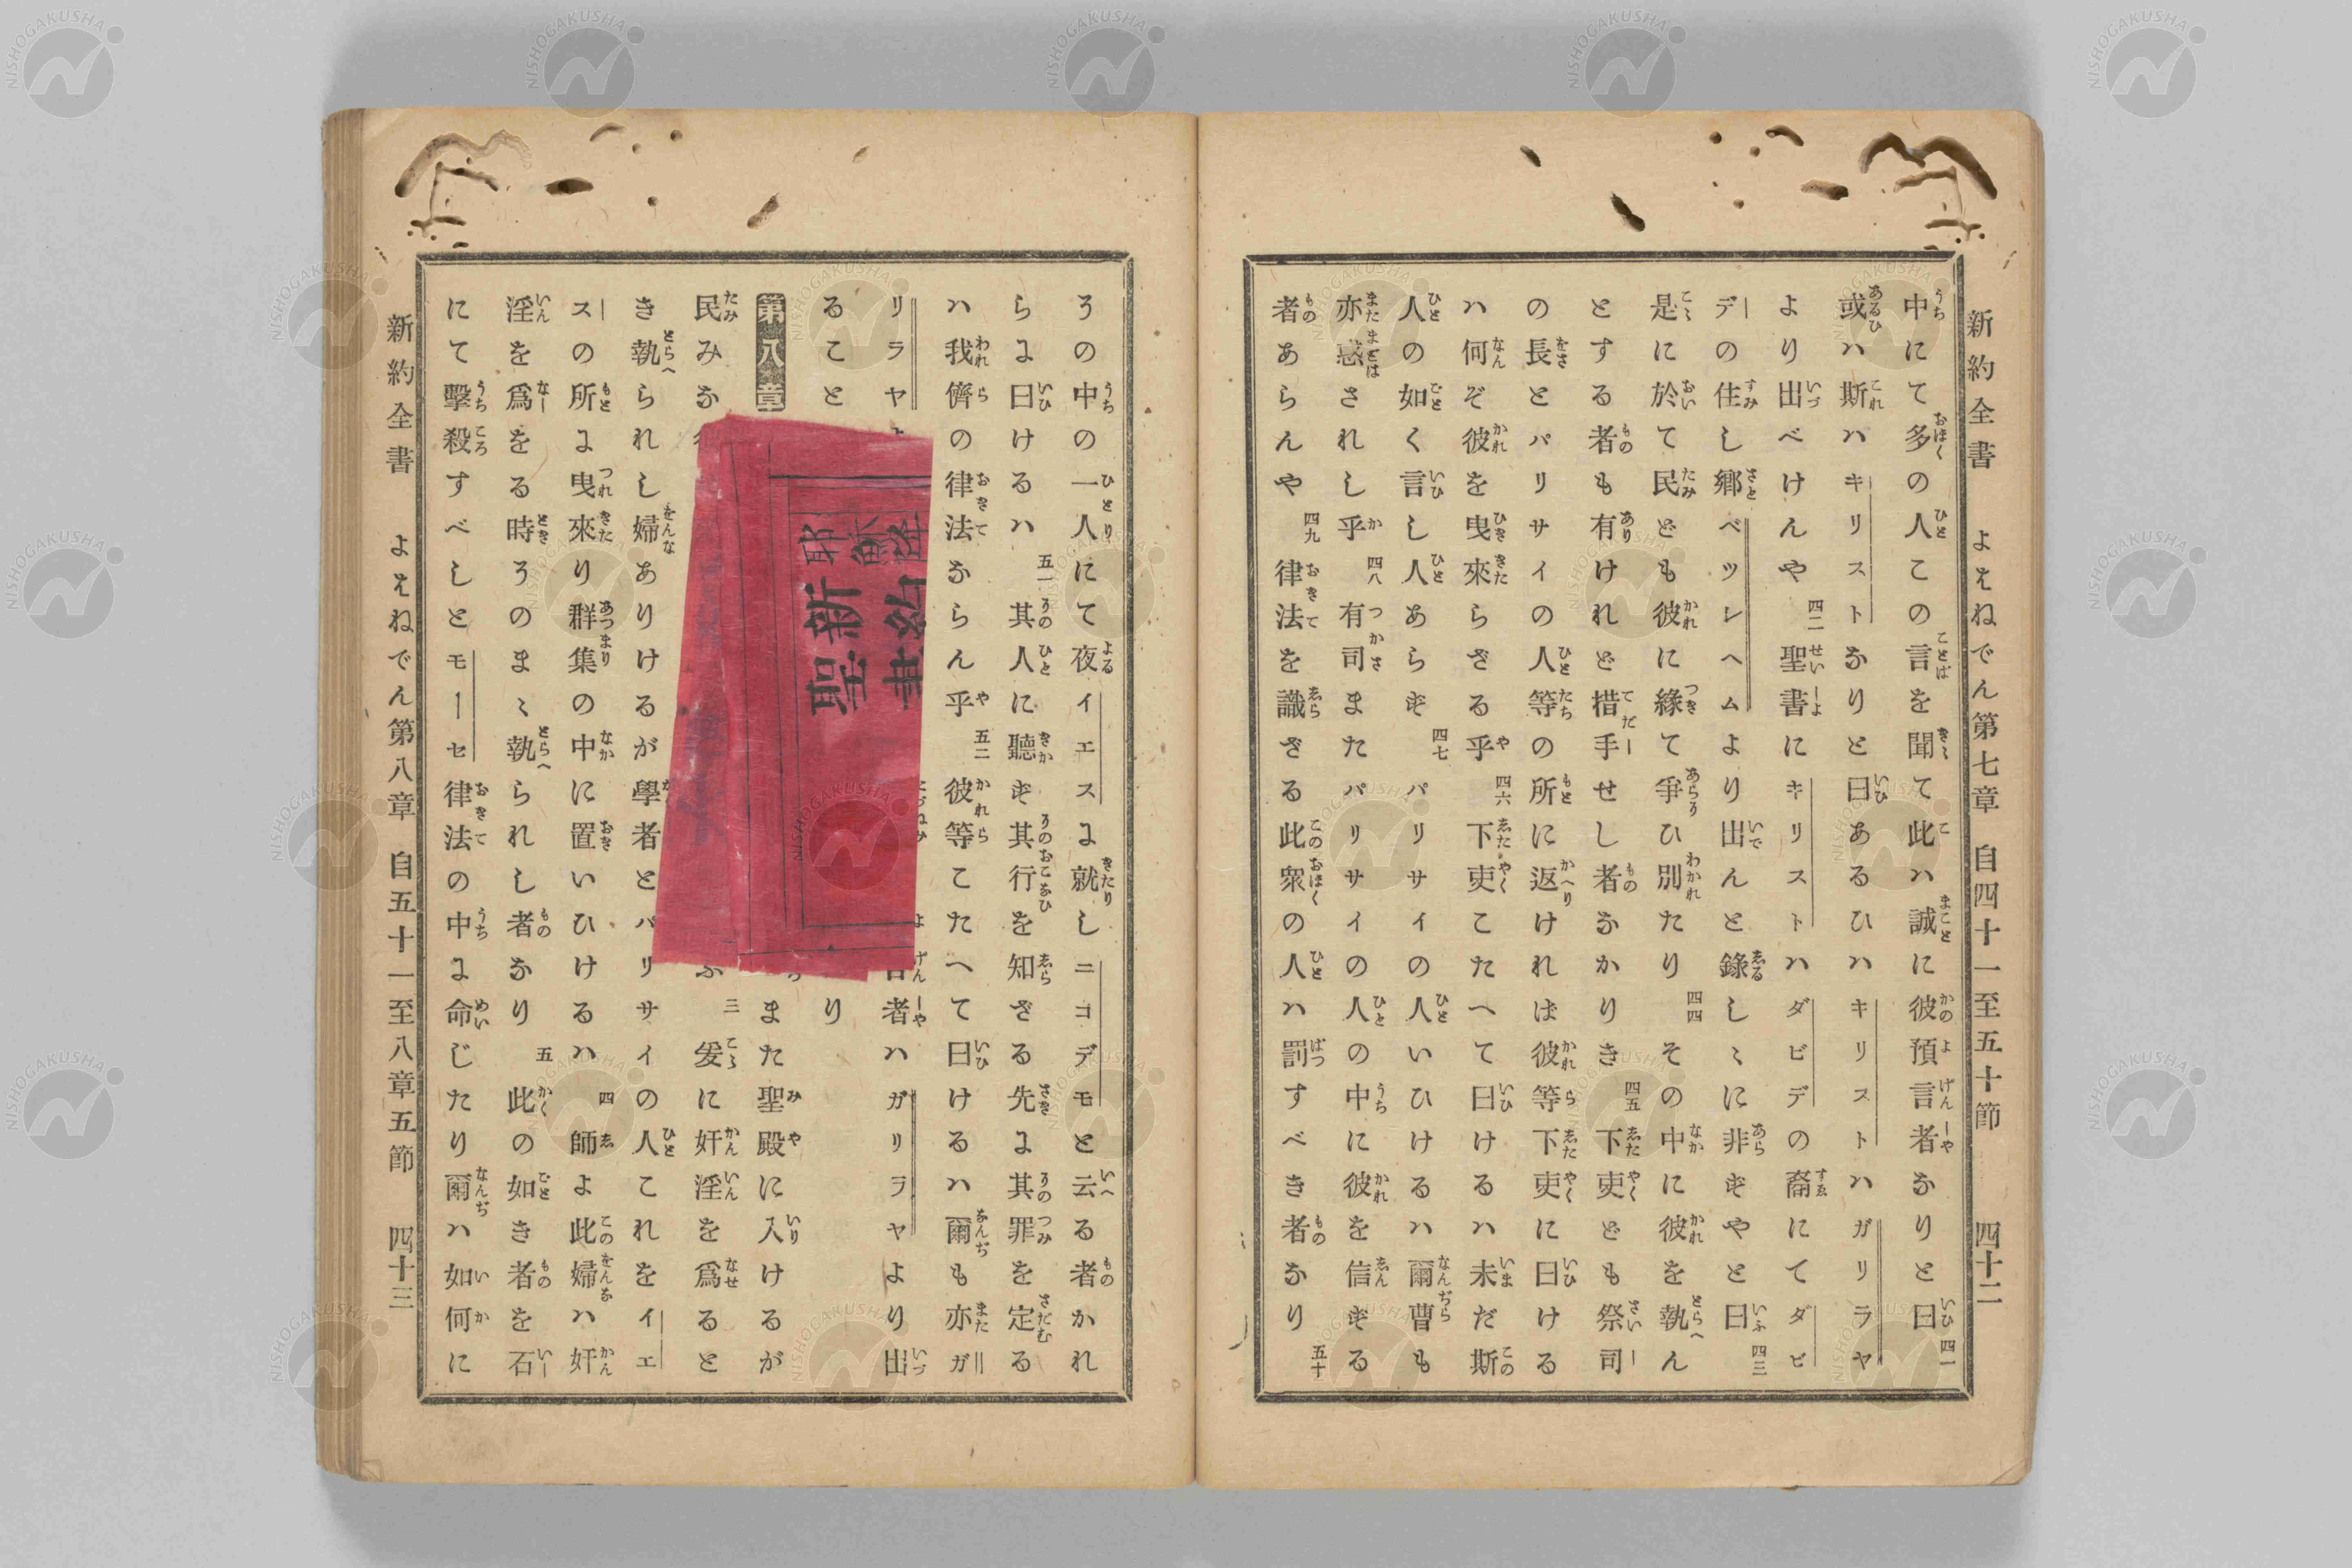 新約全書 よはねでん第七章 自四十一至五十節 四十二
中にて多の人この言を聞て此ハ誠に彼預言者なりと曰 四一
或ハ斯ハキリストなりと曰あるひハキリストハガリラヤ
より出べけんや 四二 聖書にキリストハダビデの裔にてダビ
デの住し郷ベツレヘムより出んと錄しゝに非ずやと曰 四三
是に於て民ども彼に緣て爭ひ別たり 四四 その中に彼を執ん
とする者も有けれど措手せし者なかりき 四五 下吏ども祭司
の長とパリサイの人等の所に返けれは彼等下吏に曰ける
ハ何ぞ彼を曳來らざる乎 四六 下吏こたへて曰けるハ未だ斯
人の如く言し人あらず 四七 パリサイの人いひけるハ爾曹も
亦惑されし乎 四八 有司またパリサイの人の中に彼を信ずる
者あらんや 四九 律法を識ざる此衆の人ハ罰すべき者なり 五十
その中の一人にて夜イエスに就しニコデモと云る者かれ
らに曰けるハ 五一 其人に聽ず其行を知ざる先に其罪を定る
ハ我儕の律法ならん乎 五二 彼等こたへて曰けるハ爾も亦ガ
リラヤ 者ハガリラヤより出
ること り
第八章 また聖殿に入けるが
民みな 三 爰に奸淫を爲ると
き執られし婦ありけるが學者とパリサイの人これをイエ
スの所に曳來り群集の中に置いひけるハ 四 師よ此婦ハ奸
淫を爲をる時そのまゝ執られし者なり 五 此の如き者を石
にて擊殺すべしとモーセ律法の中に命じたり爾ハ如何に
新約全書 よはねでん第八章 自五十一至八章五節 四十三
耶穌降
新
聖
NISHOGAKUSHA